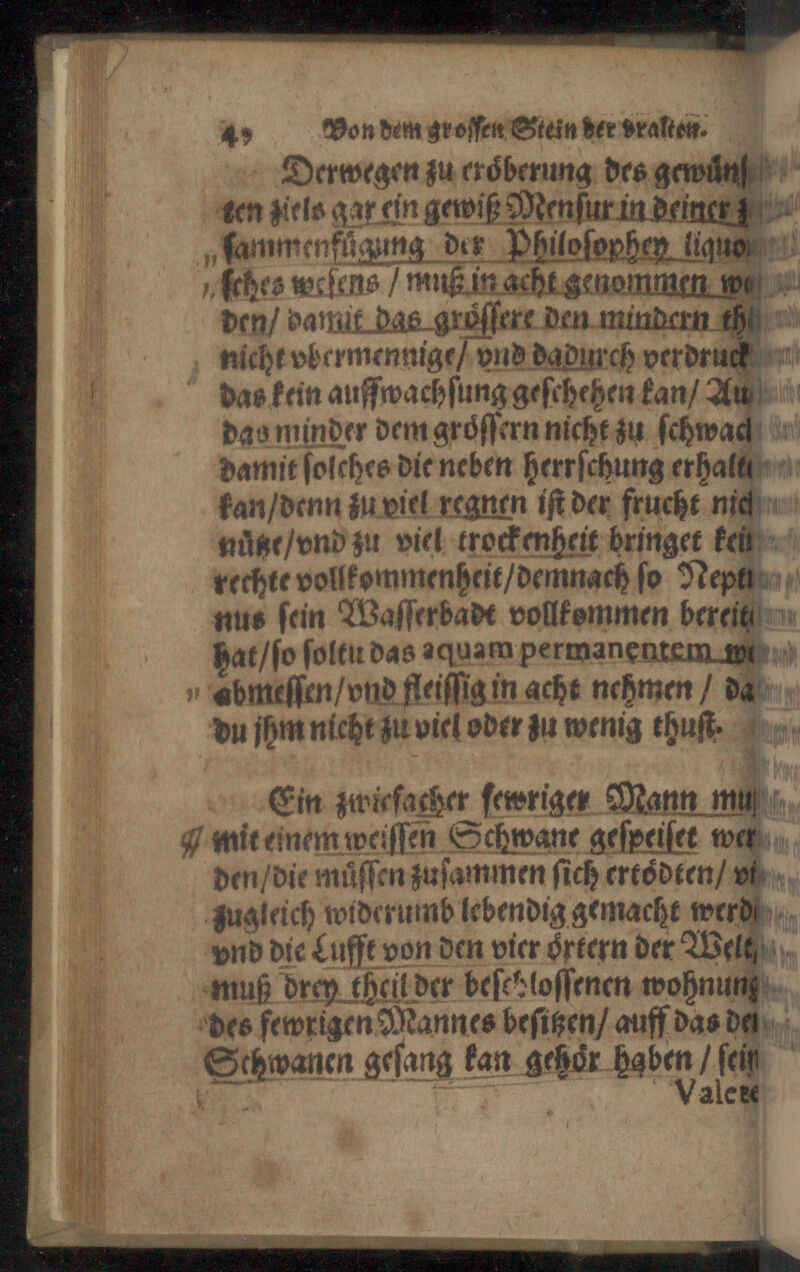 49 Von dem groſſen Stein der vralten.
Derwegen zu eröberung des gewünſ
ten ziels gar ein gewiß Menſur in deiner z
ſammenfügung der Philoſophey liquo
ſches weſens / muß in acht genommen we
den/ damit das gröſſere den mindern th
nicht vbermennige/ vnd dadurch verdruck
das kein auffwachſung geſchehen kan/ Au
das minder dem gröſſern nicht zu ſchwach
damit ſolches die neben herrſchung erhalt
kan/denn zu viel regnen iſt der frucht nich
nütze/vnd zu viel trockenheit bringet kei
rechte vollkommenheit/demnach ſo Neptu
nus ſein Waſſerbadt vollkommen bereit
hat/ſo ſoltu das aquam permanentem
abmeſſen/vnd fleiſſig in acht nehmen / da
du jhm nicht zu viel oder zu wenig thuſt.
Ein zwiefacher fewriger Mann muß
mit einem weiſſen Schwane geſpeiſet wer
den/die müſſen zuſammen ſich ertödten/ v
zugleich widerumb lebendig gemacht werd
vnd die Lufft von den vier örtern der Welt
muß drey theil der beſchloſſenen wohnung
des fewrigen Mannes beſitzen/ auff das de
Schwanen geſang kan gehör haben / ſein
Valete